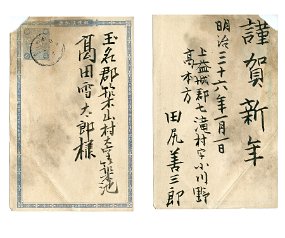 玉名郡築山村大字築地
高田雪太郎様
謹賀新年
明治三十六年一月一日
上益城郡七滝村字小川野
高本方
田尻善三郎